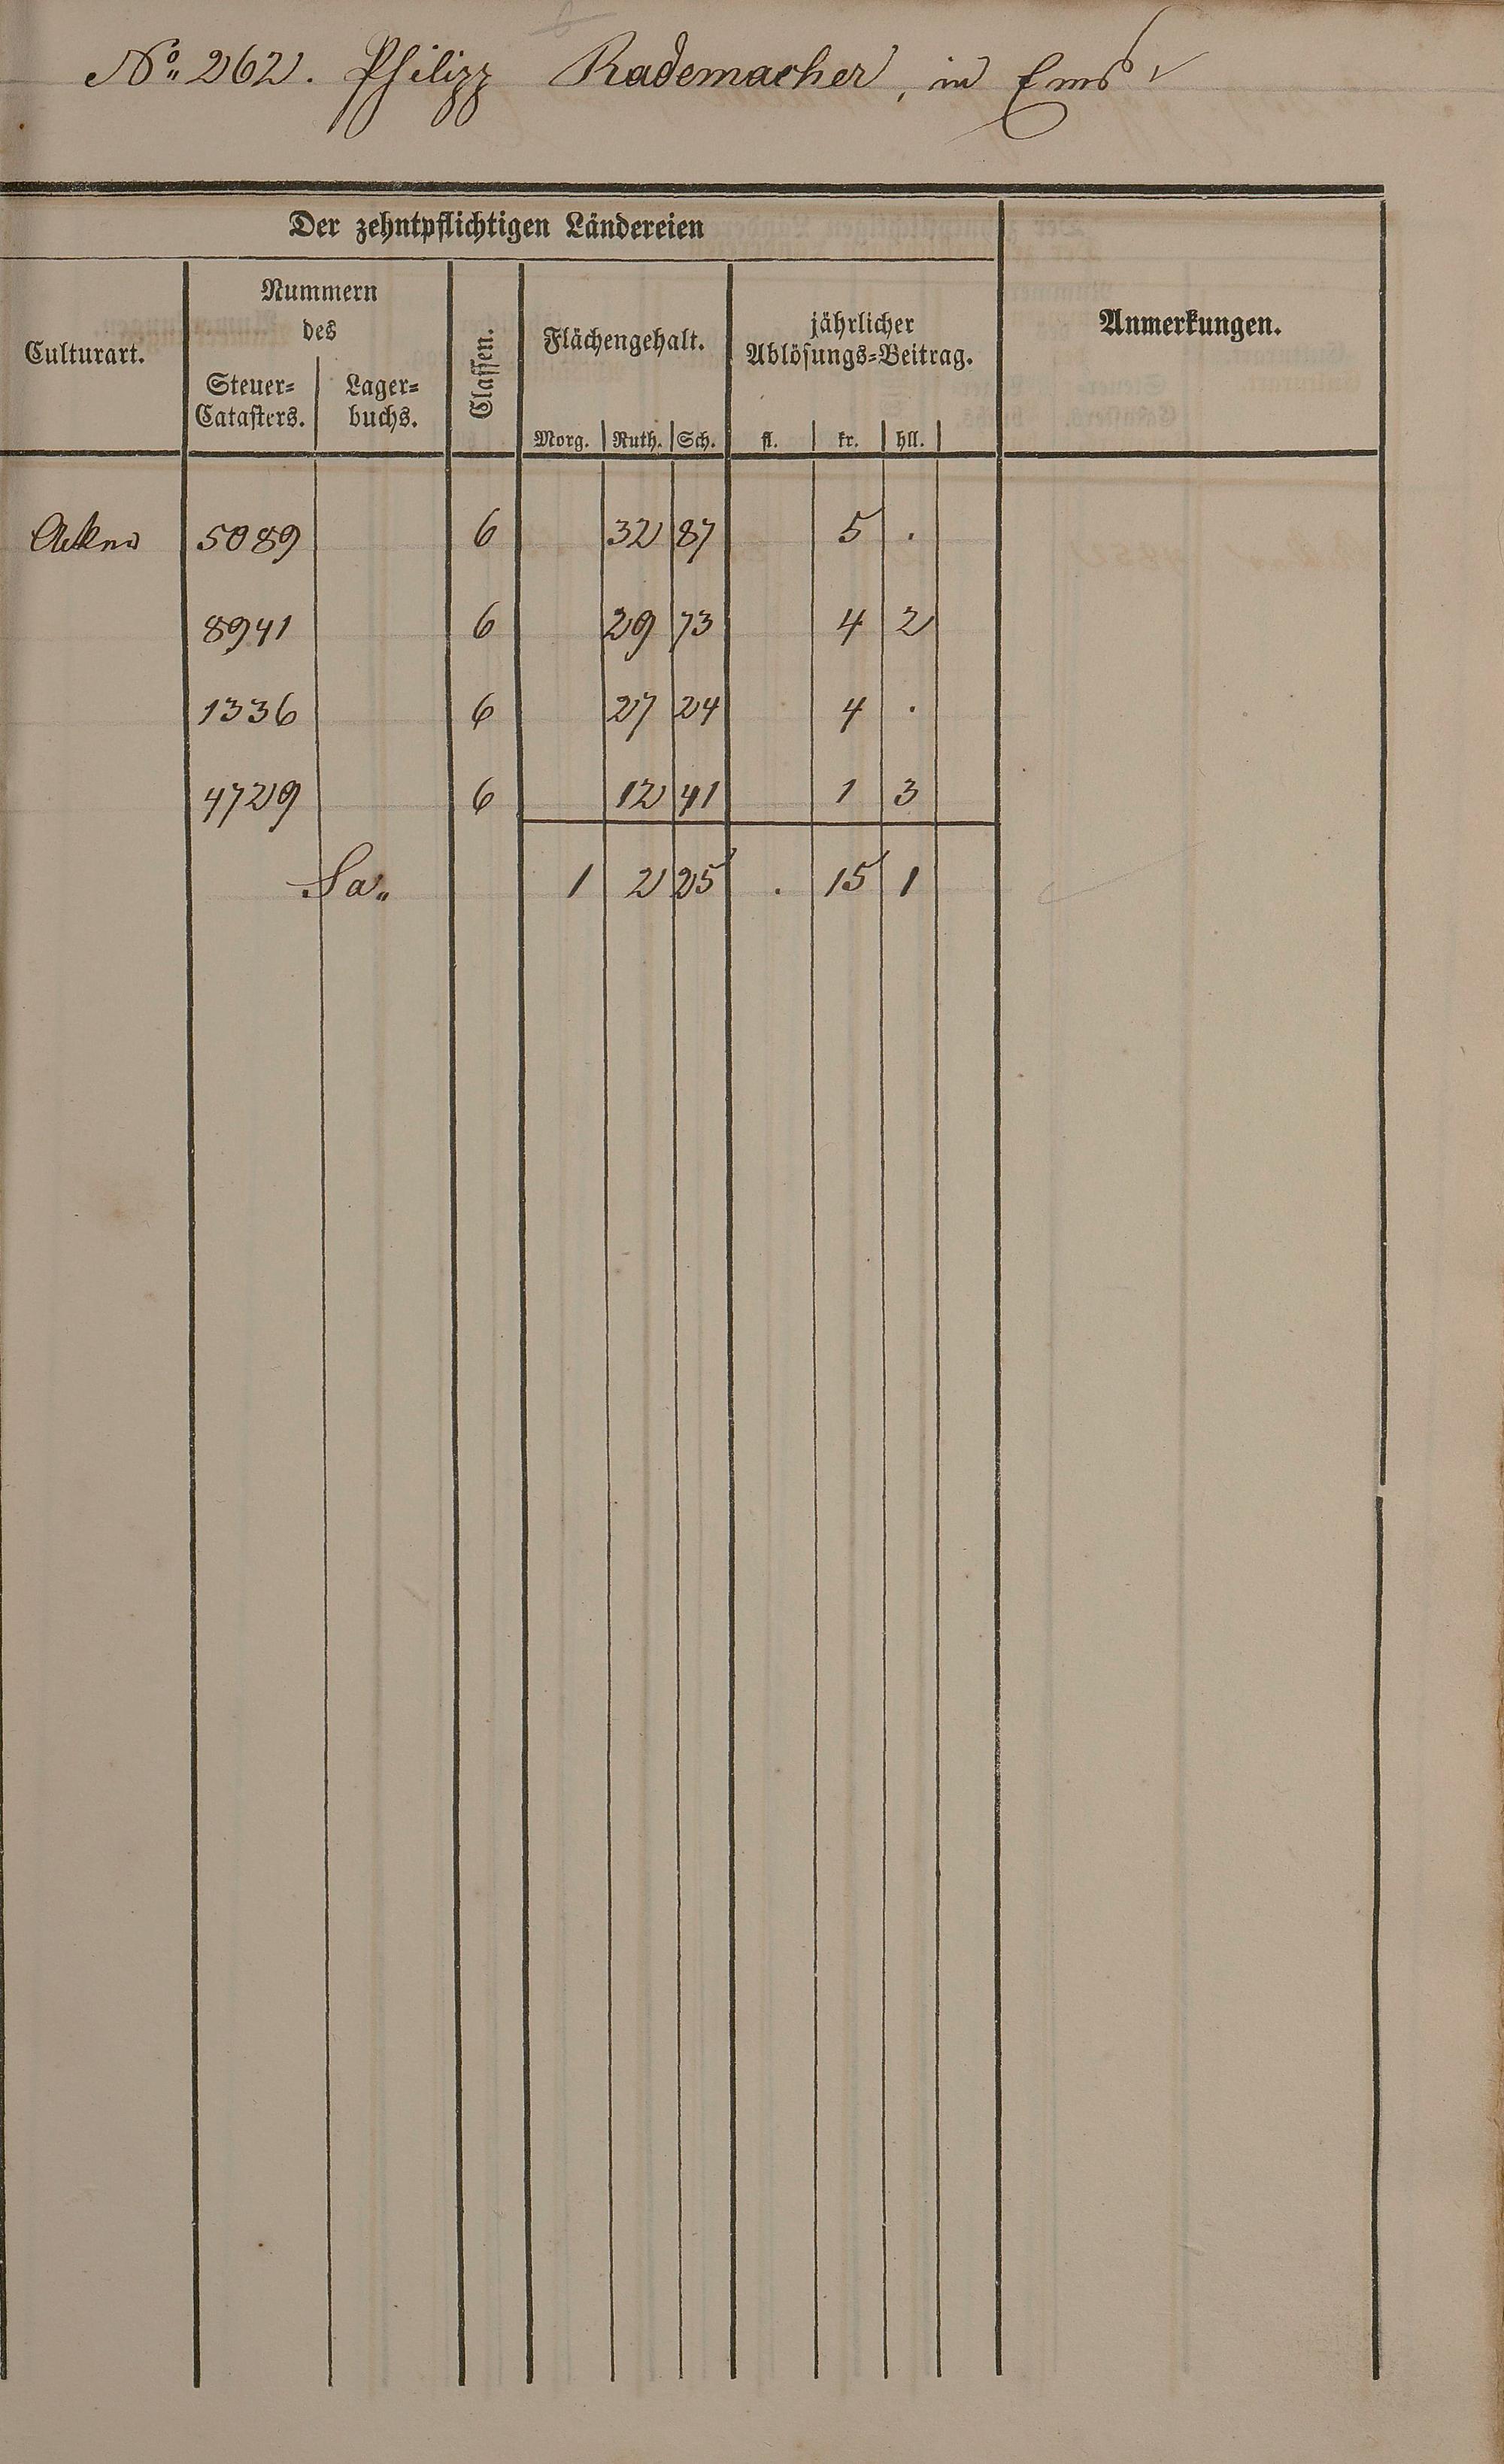 No. 262. Philipp Rademacher, in Ems
Der zehntpflichtigen Ländereien
Culturart.
Nummern
des
Steuer=
Catasters.
Lager=
buchs.
Classen.
Flächengehalt.
Morg. Ruth. Sch.
jährlicher
Ablösungs=Beitrag.
fl. kr. hll.
Anmerkungen.
Acker 5089 6 32 87 5 .
8941 6 29 73 4 2
1336 6 27 24 4 .
4729 6 12 41 1 3
Sa. 1 2 25 . 15 1